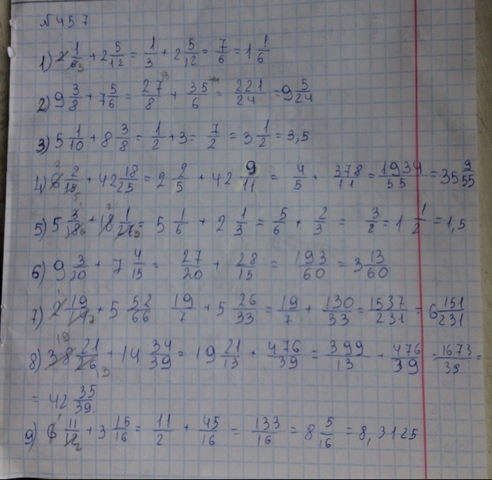 №457
1) 2 1/6 + 2 5/12 = 1/3 + 2 5/12 = 7/6 = 1 1/6
2) 9 3/8 + 7 5/6 = 27/8 + 35/6 = 221/24 = 9 5/24
3) 5 1/10 + 8 3/8 = 1/2 + 3 = 7/2 = 3 1/2 = 3,5
4) 6 2/15 + 42 18/25 = 2 2/5 + 42 9/11 = 4/5 + 378/11 = 1934/55 = 35 9/55
5) 5 3/18 + 18 1/27 = 5 1/6 + 2 1/3 = 5/6 + 2/3 = 3/2 = 1 1/2 = 1,5
6) 9 3/20 + 7 4/15 = 27/20 + 28/15 = 193/60 = 3 13/60
7) 2 19/14 + 5 52/66 19/7 + 5 26/33 = 19/7 + 130/33 = 1537/231 = 6 151/231
8) 38 21/26 + 14 34/39 = 19 21/13 + 476/39 = 399/13 + 476/39 = 1673/39 =
= 42 35/39
9) 6 11/12 + 3 15/16 = 11/2 + 45/16 = 133/16 = 8 5/16 = 8,3125